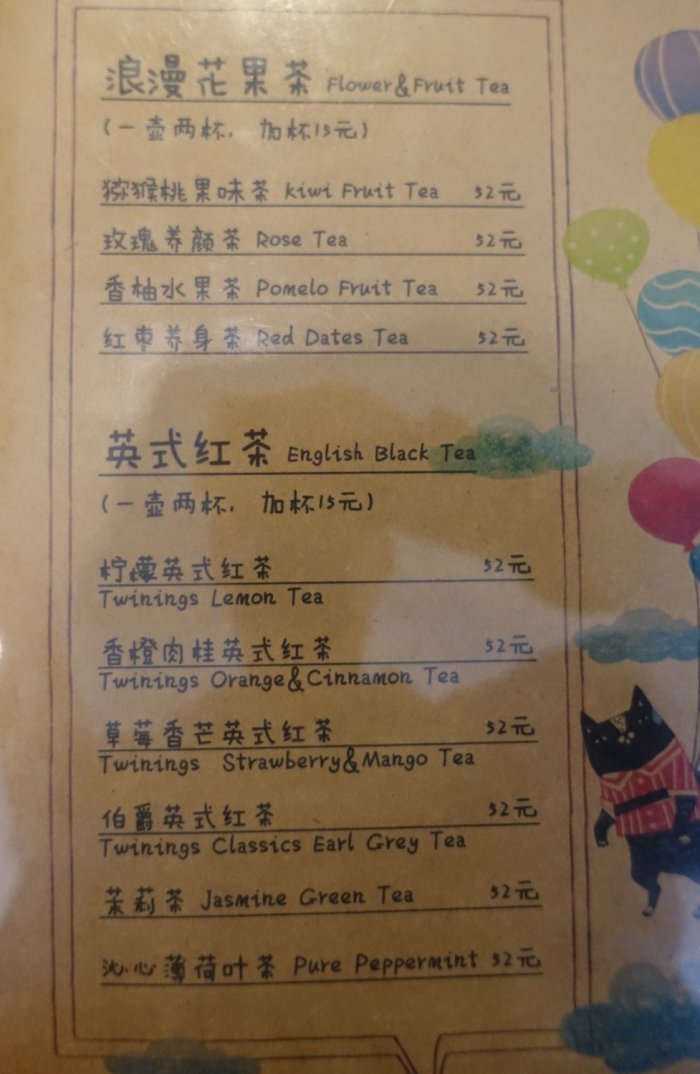 浪漫花果茶 Flower&Fruit Tea
(一壶两杯, 加杯15元)
猕猴桃果味茶 kiwi Fruit Tea 52元
玫瑰养颜茶 Rose Tea 52元
香柚水果茶 Pomelo Fruit Tea 52元
红枣养身茶 Red Dates Tea 52元
英式红茶 English Black Tea
(一壶两杯, 加杯15元)
柠檬英式红茶 52元
Twinings Lemon Tea
香橙肉桂英式红茶 52元
Twinings Orange&Cinnamon Tea
草莓香芒英式红茶 52元
Twinings Strawberry&Mango Tea
伯爵英式红茶 52元
Twinings Classics Earl Grey Tea
茉莉茶 Jasmine Green Tea 52元
沁心薄荷叶茶 Pure Peppermint 52元